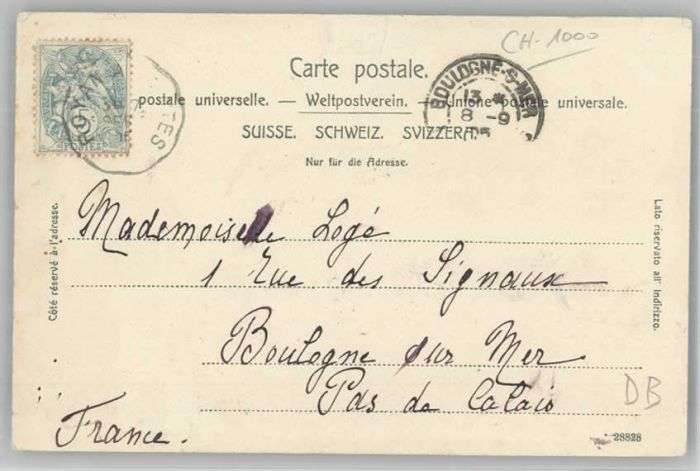 CH-1000
Carte postale.
postale universelle. — Weltpostverein. — Unione postale universale.
SUISSE. SCHWEIZ. SVIZZERA.
Nur für die Adresse.
BOULOGNE-S-MER
13 *
8 -9
POSTES
Côté réservé à l'adresse.
Lato riservato all' indirizzo.
Mademoiselle Logé
1 Rue des Signaux
Boulogne sur Mer
Pas de Calais
France.
DB
28828